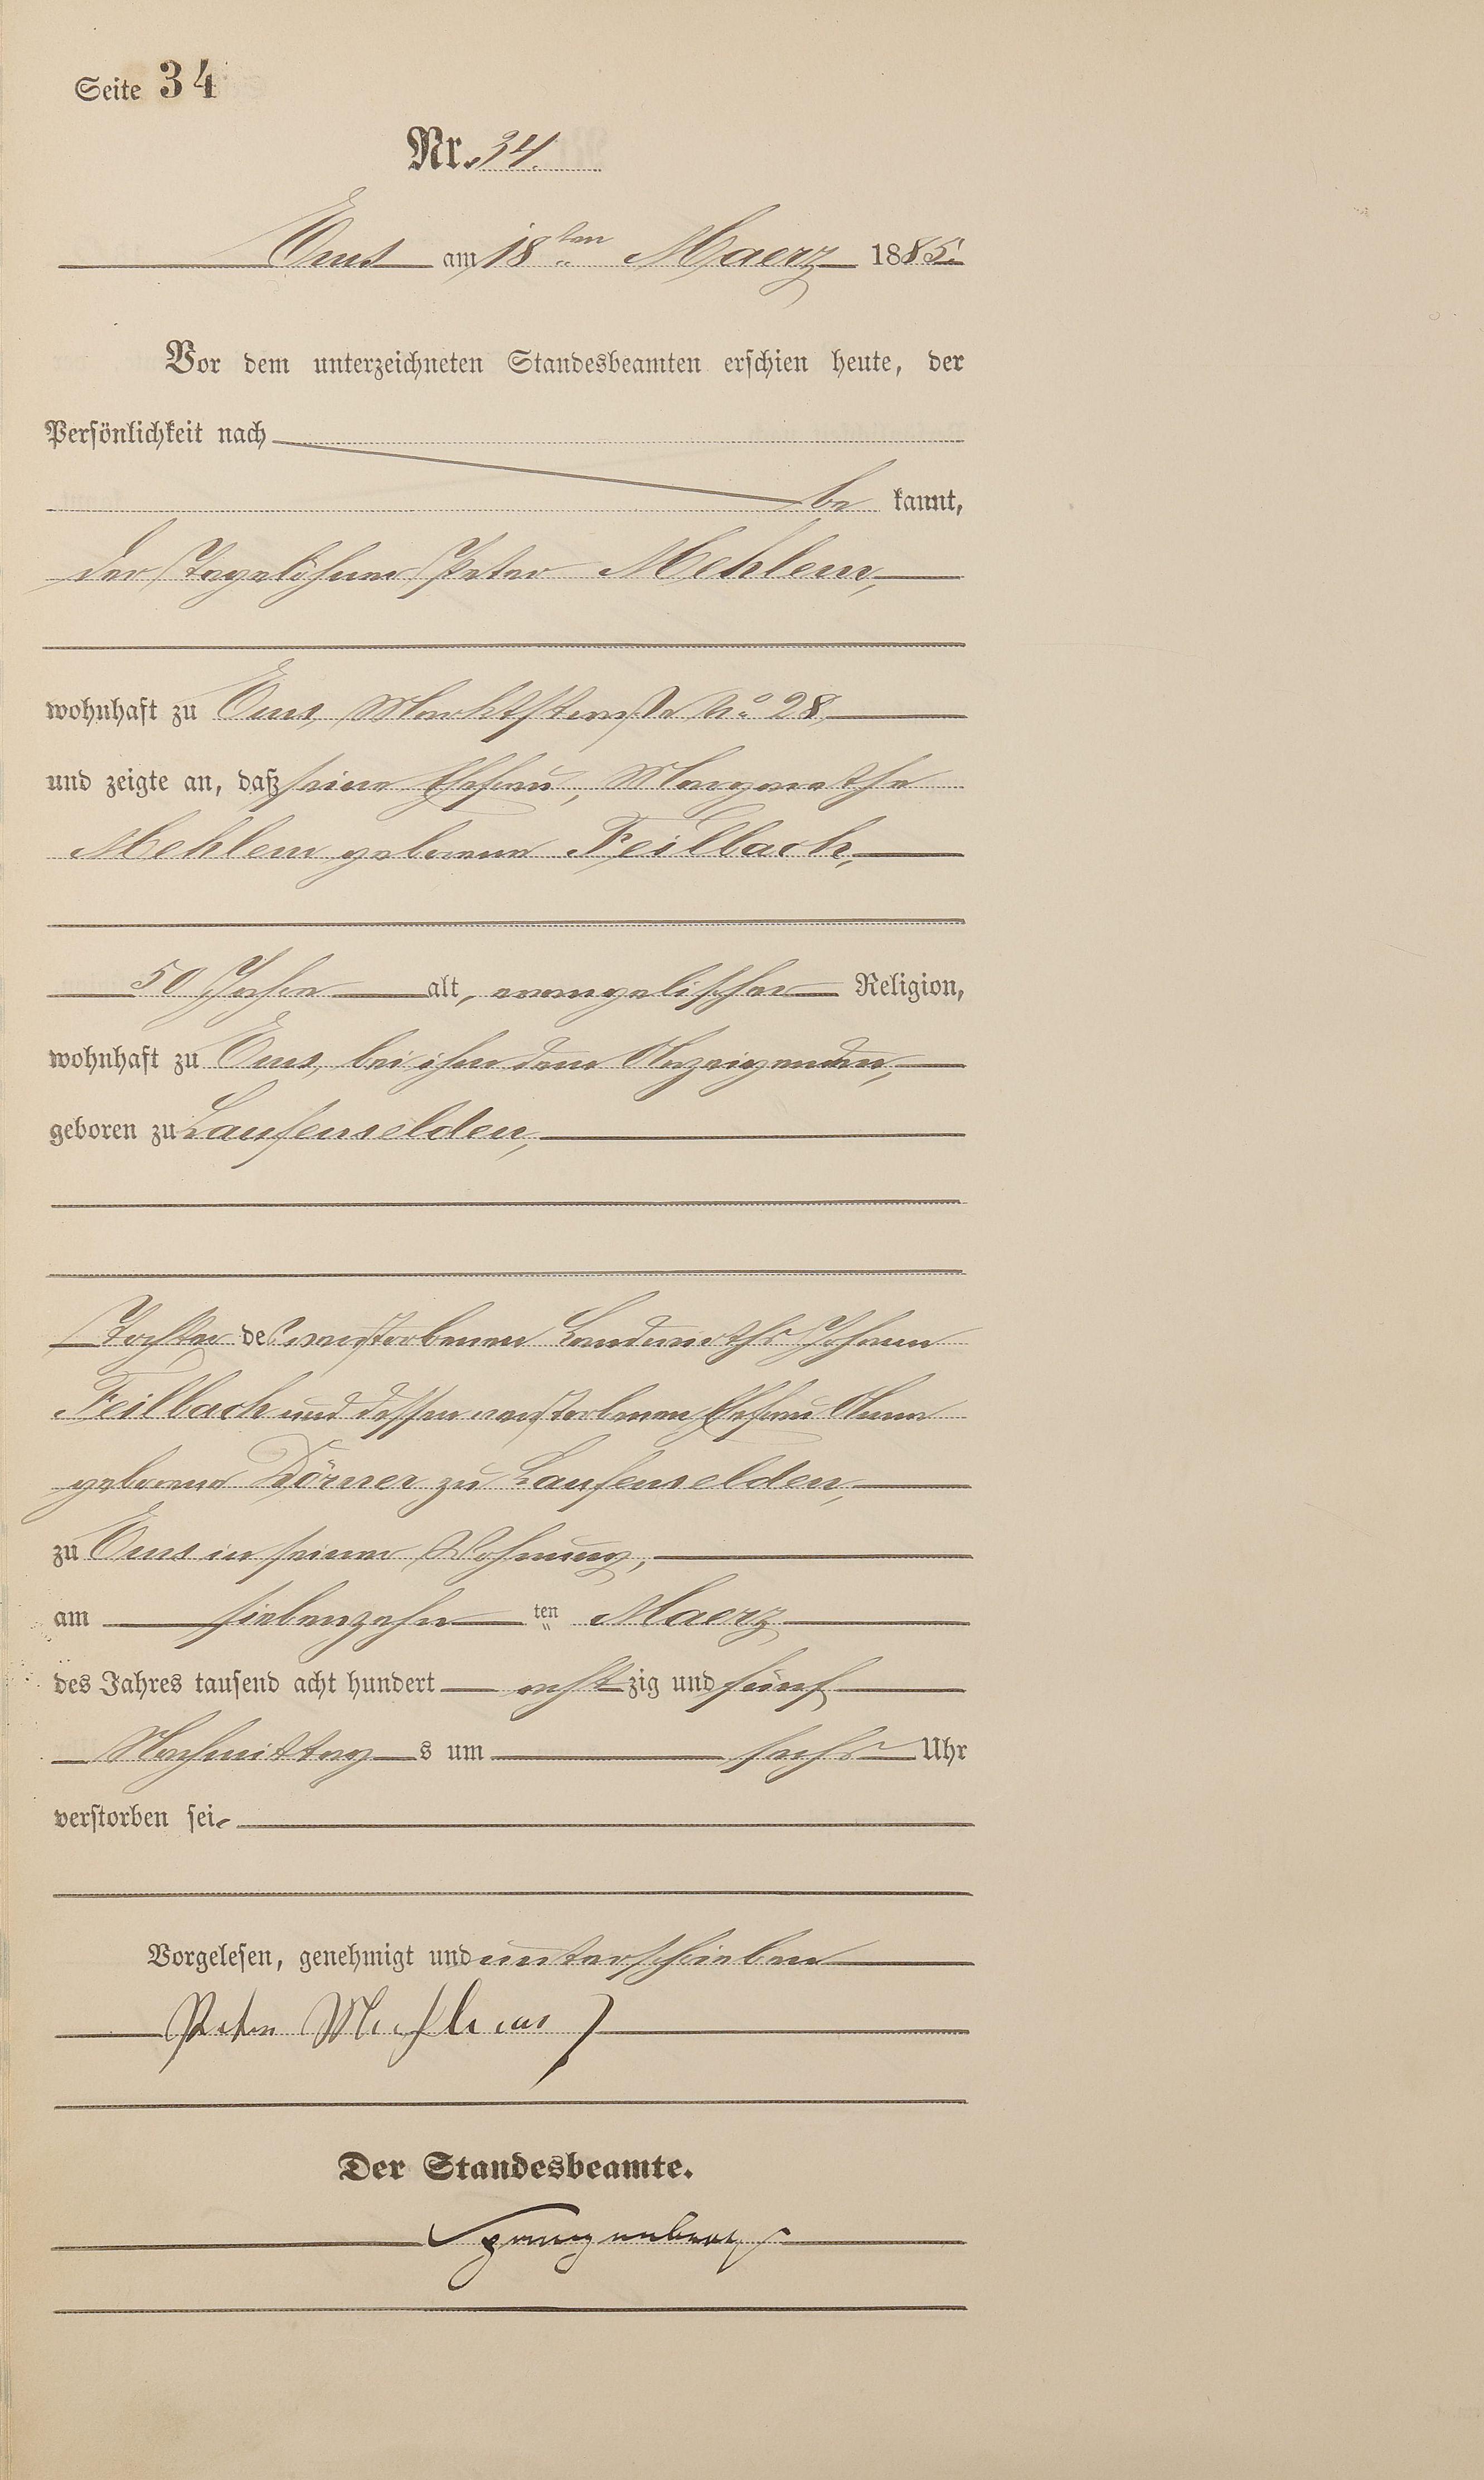 Seite 34
Nr. 34.
Ems am 18ten Maerz 1885.
Vor dem unterzeichneten Standesbeamten erschien heute, der
Persönlichkeit nach
be kannt,
der Tagelöhner Peter Mehlem,
wohnhaft zu Ems, Marktstraße No 28,
und zeigte an, daß seine Ehefrau, Margarethe
Mehlem geborene Feilbach,
50 Jahre alt, evangelischer Religion,
wohnhaft zu Ems, bei ihm dem Anzeigenden,
geboren zu Laufenselden,
Tochter des verstorbenen Landwirths Johann
Feilbach und dessen verstorbenen Ehefrau Anna
geborene Dörner zu Laufenselden,
zu Ems in seiner Wohnung,
am siebenzehn ten Maerz
des Jahres tausend acht hundert acht zig und fünf
Nachmittag s um sechs Uhr
verstorben sei.
Vorgelesen, genehmigt und unterschrieben
Peter Mehlem
Der Standesbeamte.
Spangenberg